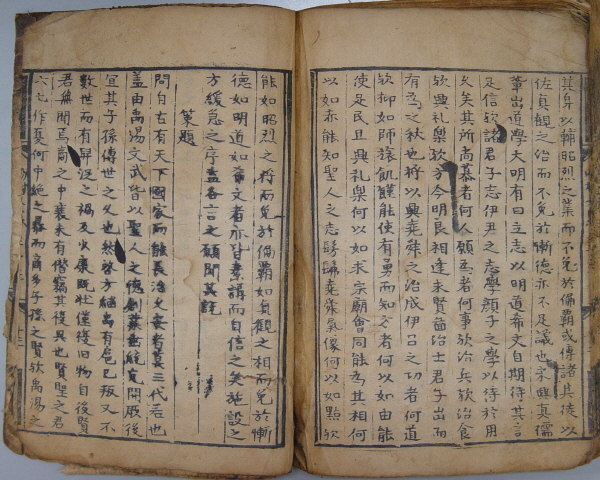 其身以輔昭烈之業而不免於偏霸或傳諸其徒以
佐貞觀之治而不免於慚德亦不足議也宋興真儒
輩出道學大明有曰立志以明道希文自期待其言
足信歟諸君子志伊尹之志學顏子之學以待於用
久矣其所慕者何人願為者何事欲治兵欲治食
欲興礼樂歟方今明良相逢未賢啚治士君子出而
有為之秋也將以興堯舜之治成伊呂之功者何道
歟抑如師旅飢饉能使有勇而知方者何以如由能
使足民且興礼樂何以如求宗廟會同能為其相何
以如赤能知聖人之志髣髴堯舜氣像何以如點歟
能如昭烈之將而免於偏霸如貞觀之相而免於慚
德如明道如希文者亦皆素講而自信之矣施設之
方緩急之序盍各言之願聞其說
策題
問自古有天下國家而能長治久安者莫三代若也
盖由禹湯文武皆以聖人之德創業垂統克開厥後
宜其子孫傳世之久也然啓方繼禹有扈已叛又不
數世而有羿浞之禍及少康既壯僅復旧物自後賢
君無聞焉商之中衰未有僭竊其復興也賢聖之君
六七作夏何中絶之暴而商多子孫之賢歟禹湯之